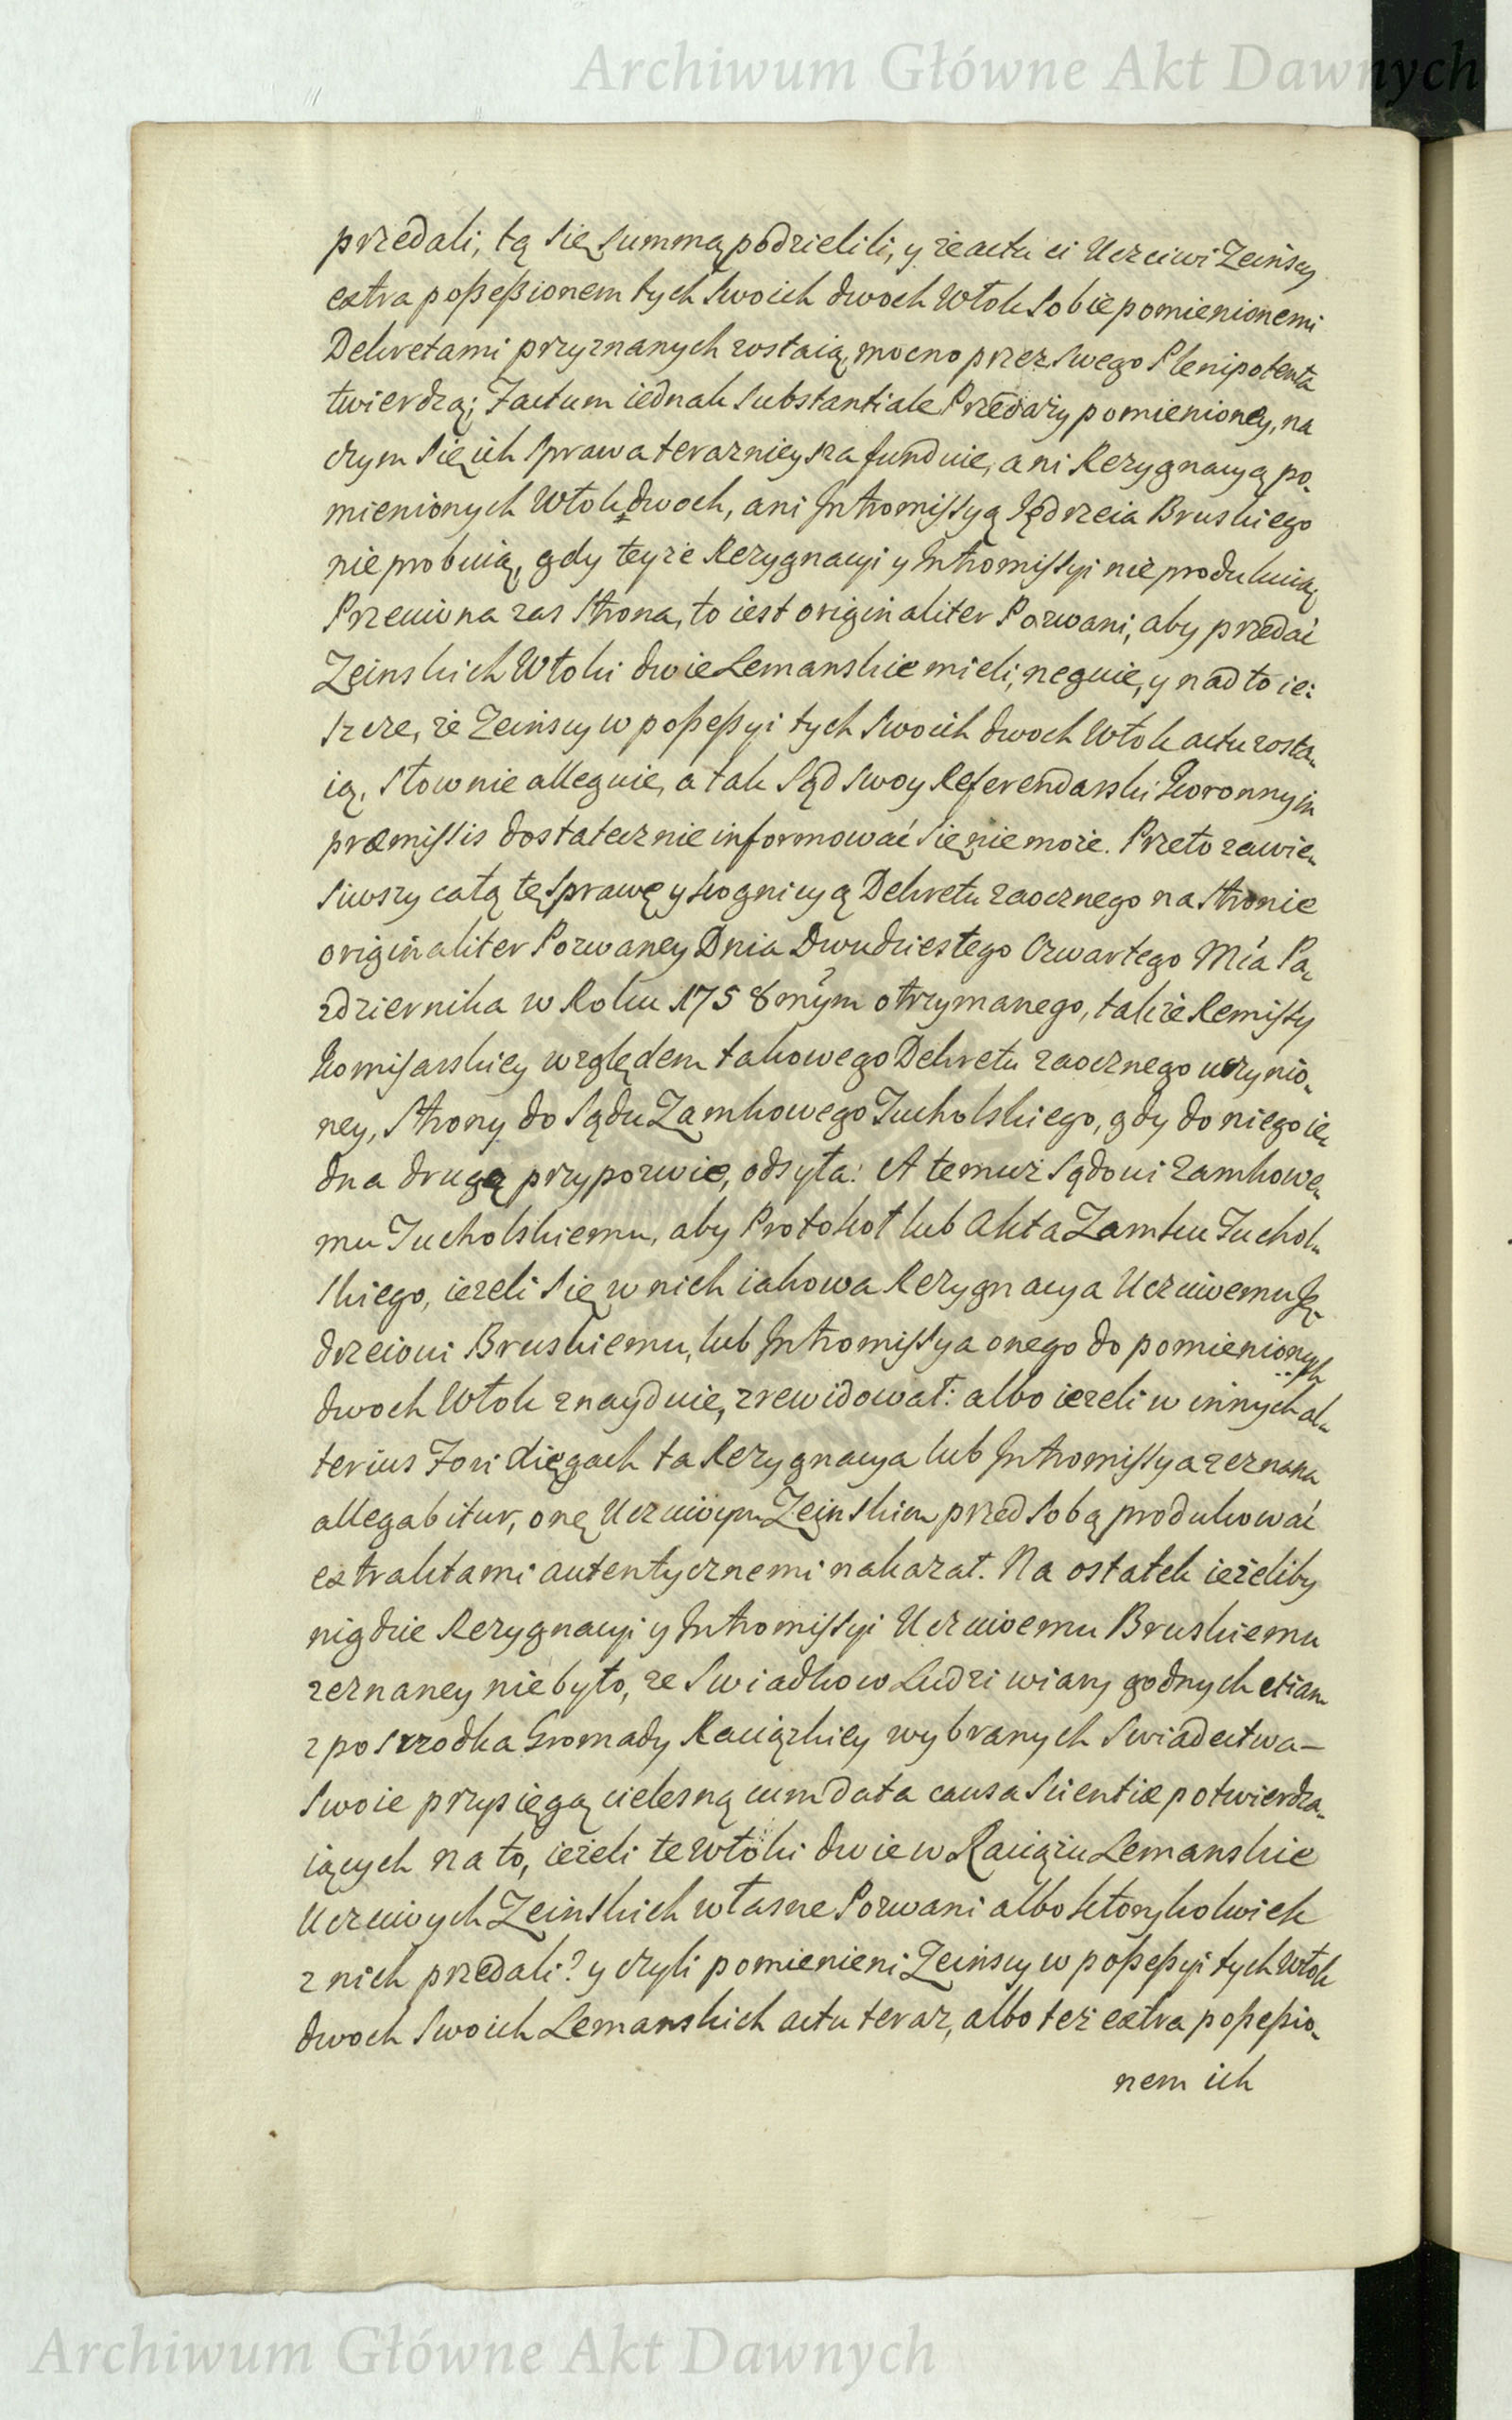 Archiwum Główne Akt Dawnych
przedali, tą się summą podzielili, y że actu ci Uczciwi Zeińscy
extra poßeßionem tych swoich dwoch Włok sobie pomienionemi
Dekretami przyznanych zostaią, mocno przez swego Plenipotenta
twierdzą; Factum iednak substantiale Przedaży pomienioney, na
czym się ich sprawa teraznieysza funduie, ani Rezygnacyą po-
mienionych Włok dwoch, ani Intromissyą Jędrzeia Bruskiego
nie probuią, gdy teyże Rezygnacyi y Intromissyi nie produkuią,
Przeciwna zas strona, to iest originaliter Pozwani, aby przedać
Zeinskich Włoki dwie Lemanskie mieli, neguie, y nad to ie-
szcze, że Zeińscy w poßeßyi tych swoich dwoch Włok actu zosta-
ią, słownie alleguie, a tak Sąd swoy Referendarski Koronny in
præmissis dostatecznie informować się nie może. Przeto zawie-
siwszy całą tę sprawę y kognicyą Dekretu zaocznego na stronie
originaliter Pozwaney Dnia Dwudziestego Czwartego Mca Pa-
zdziernika w Roku 1758mym otrzymanego, także Remissy
Komisarskiey względem takowego Dekretu zaocznego uczynio-
ney, strony do Sądu Zamkowego Tucholskiego, gdy do niego ie-
dna drugą przypozwie, odsyła: A temuż Sądowi Zamkowe-
mu Tucholskiemu, aby Protokoł lub Akta Zamku Tuchol-
skiego, ieżeli się w nich iakowa Rezygnacya Uczciwemu Ję-
drzeiowi Bruskiemu, lub Intromissya onego do pomienionych
dwoch Włok znayduie, zrewidował: albo ieżeli w innych al-
terius Fori xięgach ta Rezygnacya lub Intromissya zeznana
allegabitur, onę Uczciwym Zeinskim przed sobą produkować
extraktami autentycznemi nakazał. Na ostatek ieżeliby
nigdzie Rezygnacyi y Intromissyi Uczciwemu Bruskiemu
zeznaney nie było, ze swiadkow Ludzi wiary godnych etiam
z posrzodka Gromady Raciązkiey wybranych swiadectwa
swoie przysięgą cielesną cum data causa scientiæ potwierdza-
iących na to, ieżeli te Włoki dwie w Raciązu Lemanskie
Uczciwych Zeinskich własne Pozwani albo ktorykolwiek
z nich przedali? y czyli pomienieni Zeińscy w poßeßyi tych Włok
dwoch swoich Lemanskich actu teraz, albo też extra poßeßio-
nem ich
Archiwum Główne Akt Dawnych